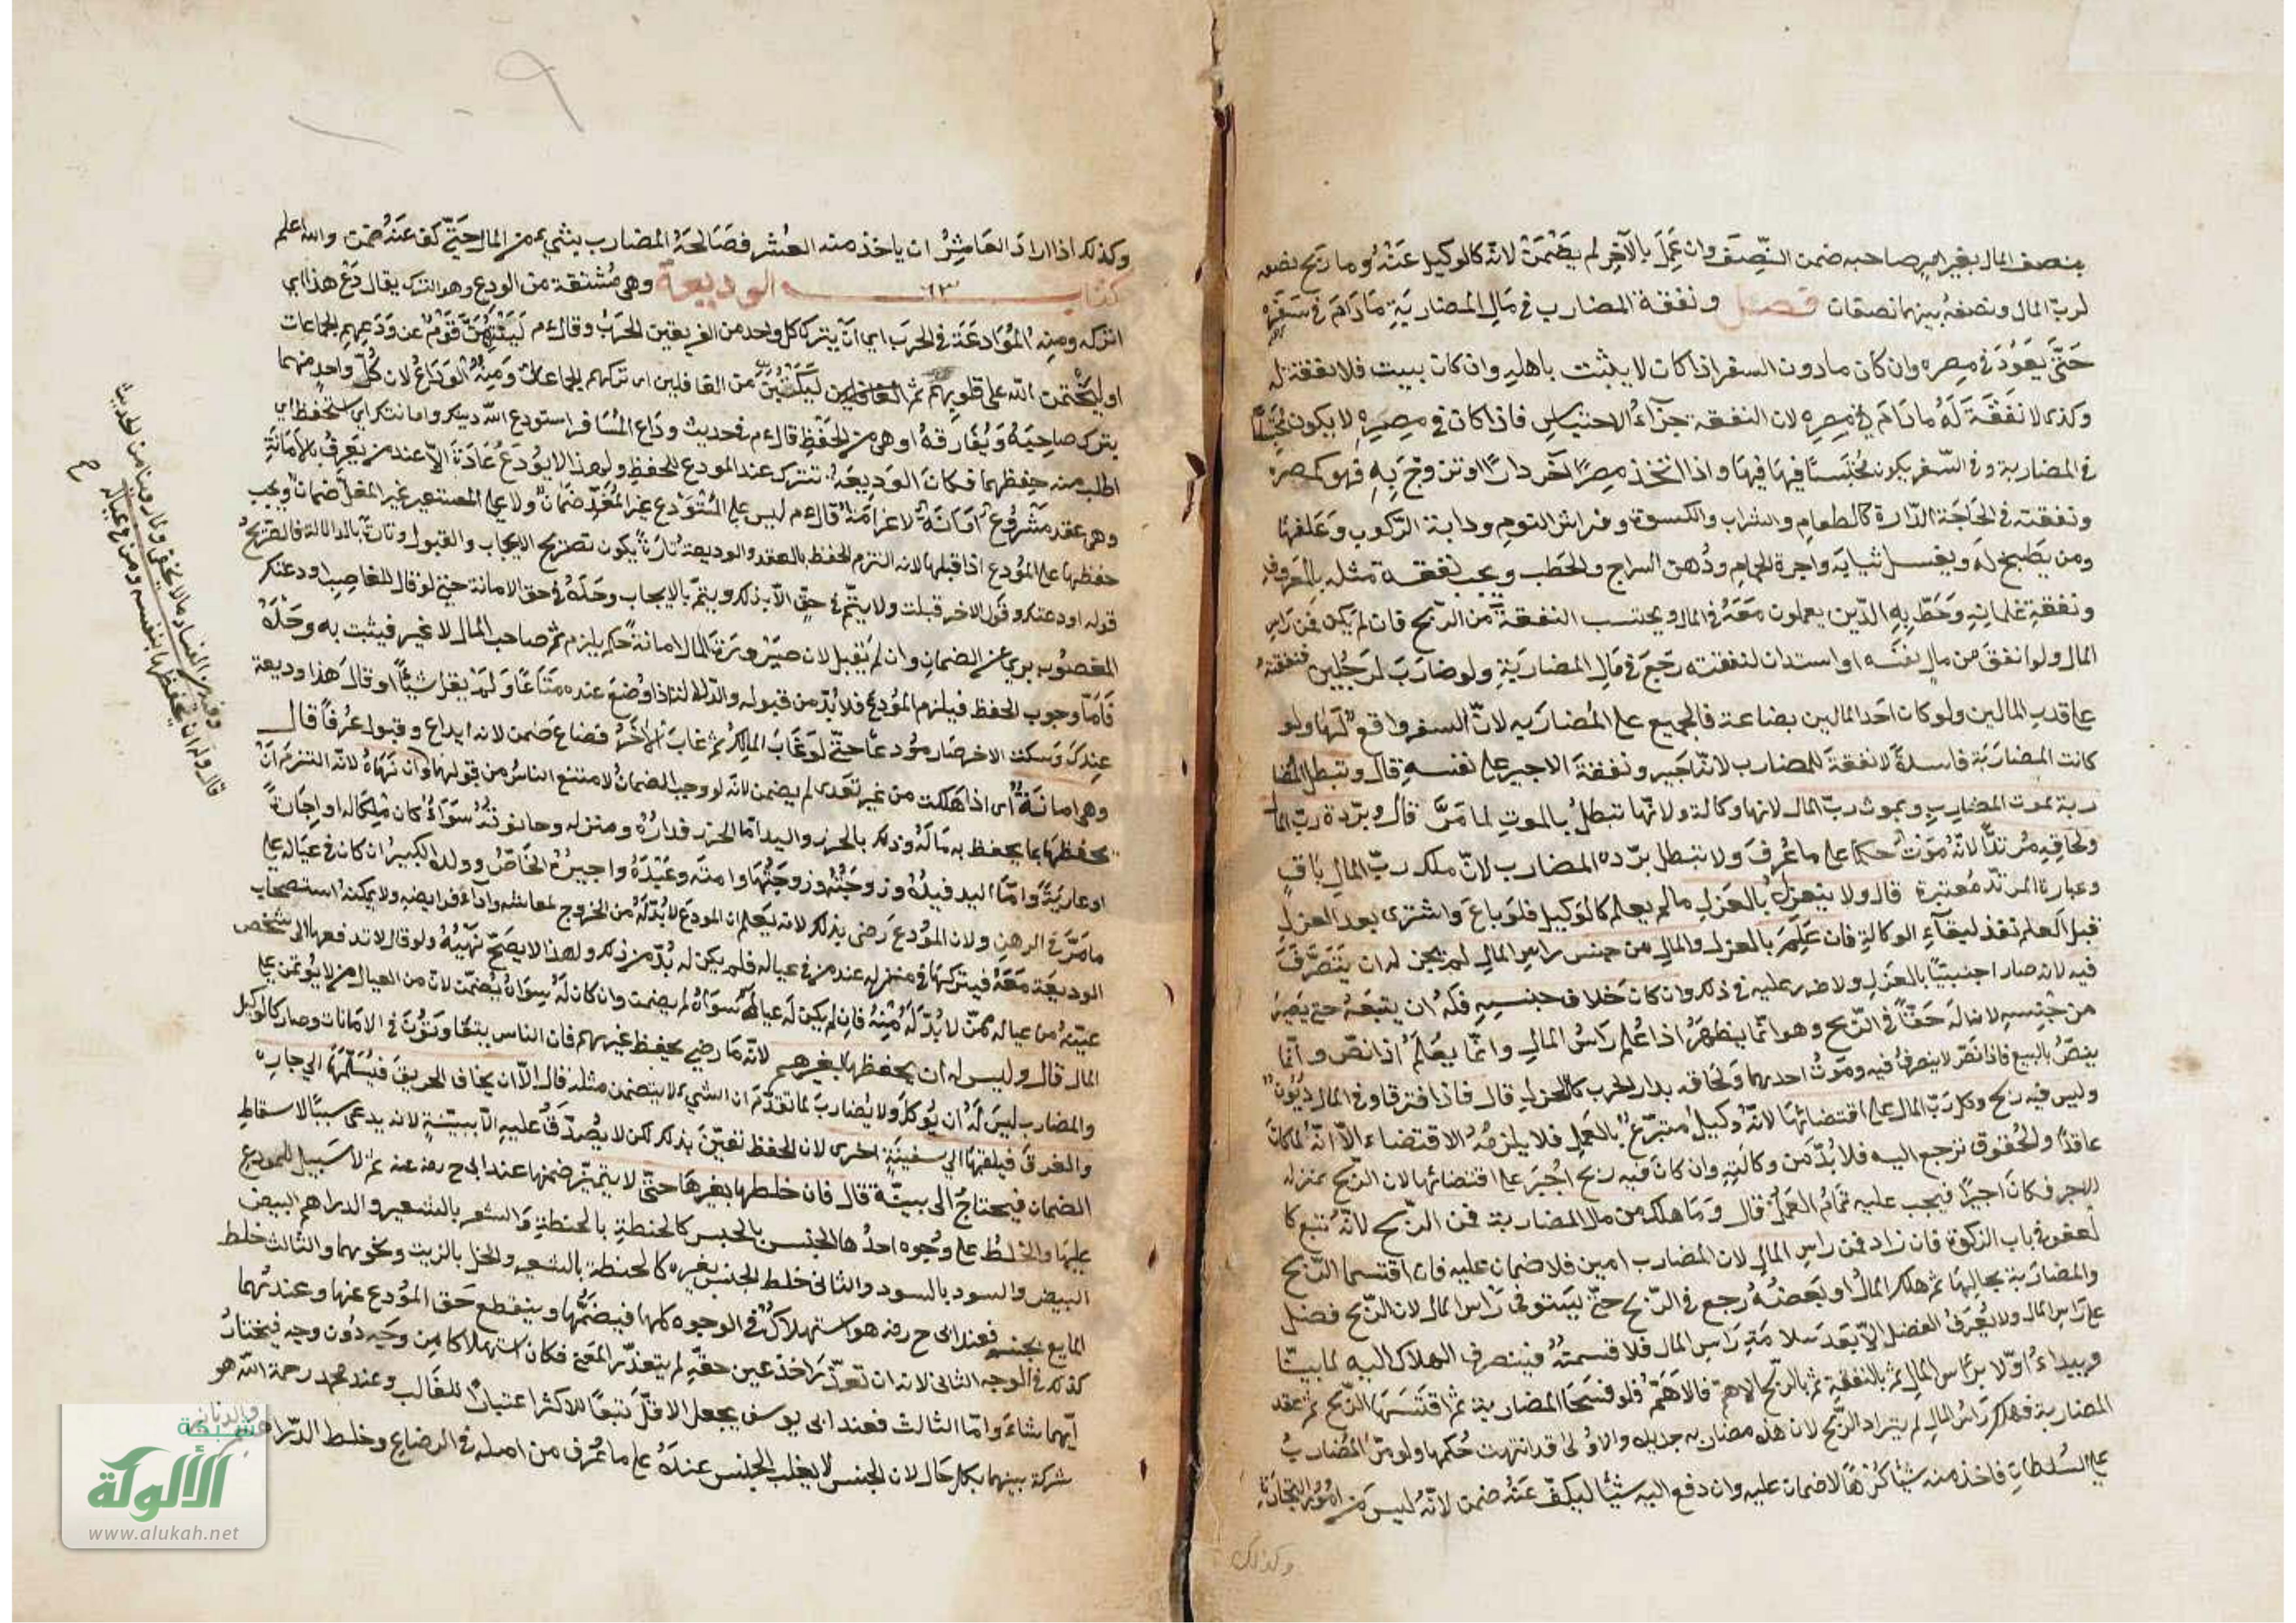 بنصف المال بغير امر صاحبه ضمن النّصف وان عَمِلَ بالآخر لم يضمن لانه كالوكيل عنه وما ربح نصفه
لربّ المال ونصفه بينهما نصفان فصل ونفقة المضارب في مَالِ المضاربَةِ مَادَامَ في سَفَرِه
حَتَّى يَعُودَ في مصره وان كان مادون السفر اذا كان لا يثبت باهليه وان كان يبيت فلا نفقة له
وكذى لا نفقَةَ لَهُ مادَامَ في مِصرِهِ لان النفقة جزآءُ الاحتباسِ فاذا كان في مِصرِهِ لا يكون مُحتَبسًا
في المضاربة وفي السّفر يكون مُحتَبسًا فيها واذا اتخذ مِصرًا آخَر دارًا او تزوّجَ بِهِ فهو كمصره
ونفقته في الحَاجَة الدّارة كالطعامِ والشراب والكسوة وفراش النوم ودابة الرّكوب وعَلَفها
ومن يَطبخ لَهُ ويغسل ثيابَه واجرة الحمام ودُهن السراج والحَطَب ويجب نفقة مثله بالمعروف
ونفقةِ غلمانِهِ وَدَوَابِّهِ الّذين يعملون مَعَهُ في المال ويحتسب النفقةَ من الرّبح فان لم يكن فمن رَاسِ
المال ولو انفقَ من مالِ نفسه او استدان لنفقته رَجَعَ في مَالِ المضاربَةِ ولو ضارَبَ لرَجُلين فنفقته
على قدر المالين ولو كان احَد المالين بضاعة فالجميع على المُضَاربه لانّ السفر واقع لَها ولو
كانت المضاربَة فاسدةً لا نفقةَ للمضارب لانّه اَجير ونفقة الاجير على نفسهِ قال وتبطل المضا
ربة بموت المضارِبِ وبموت ربّ المال لانها وكالة ولانّها تبطلُ بالموتِ لما مَرَّ قال وبردّة ربّ المال
ولحَاقِهِ مُرتدًّا لانّه مَوتٌ حكمًا على ما عُرفَ ولا تبطل بردّة المضارب لانّ ملك ربّ المالِ باقٍ
وعبارة المرتدّ مُعتبرة قال ولا ينعزلُ بالعَزلِ مالم يعلم كالوَكيل فلو باعَ واشترى بعد العزلِ
قبل العلم نفذ لبقآءِ الوكالةِ فان عَلِمَ بالعزل والمال من جنس راسِ المالِ لم يجز له ان يَتَصَرَّفَ
فيه لانه صار اجنبيًّا بالعَزلِ ولا ضرر عليه في ذلك وان كان خلاف جنسِهِ فلَهُ ان يبيعَهُ حتى يَصِيرَ
من جنسِهِ لان له حَقًّا في الرّبح وهو انّما يظهَرُ اذا عُلم رَاسُ المالِ وانّما يعُلَمُ اذا نضّ وانّما
ينضُّ بالبيع فاذا نَضّ لا يتصرفُ فيه ومَوتُ احدِهما ولحَاقه بدار الحرب كالعزل قال فاذا افترقا وفي المالِ دُيُونٌ
وليس فيه ربح وكل ربّ المال على اقتضائها لانّه وكيل متبرّعٌ بالعَمَلِ فلا يلزمهُ الاقتضاء الاّ انّه لما كانَ
عاقدًا والحُقوق ترجع اليه فلا بُدّ من وكالَتِهِ وان كانَ فيه ربح اُجبَرَ على اقتضائها لان الرّبح بمنزلة
الاجر فكانَ اجيرًا فيجب عليه تمَامُ العَمَل قال وَمَا هلك من مال المضاربة فمن الربح لانّه تَبَع كا
لعفو في باب الزكوة فان زاد فمن راسِ المالِ لان المضارب امين فلا ضمان عليه فان اقتسما الرّبح
والمضاربَة بحالِها ثم هلك المالُ او بَعضُه رُجع في الرّبح حتّى يَستوفي رَاسَ المال لان الرّبح فضل
على رَاسِ المال ولا يُعرَفُ الفضل الاّ بَعد سلامَةِ رَاسِ المال فلا قسمَتهُ فينصرف الهلاك اليه لما بيّنا
ويبداءُ اوّلا براس المالِ ثم بالنفقةِ ثم بالربح الاهمّ فالاهَمّ فلو فسخا المضاربة ثم اقتسما الرّبح ثم عقد
المضاربة فهلك رَاسُ المالِ لم يترادّا الرّبح لان هذه مضاربه جديدة والاولى قد انتهت حُكمها ولو مرّ المُضاربُ
على السُلطانِ فاخذ منه شيئا كرْهًا لا ضمان عليه وان دفع اليه شيئًا ليكفّ عَنهُ ضمن لانّهُ ليسَ من امُورِ التِجارَةِ
وكذلك
وكذلك اذا ارادَ العَاشِرُ ان ياخذ منه العُشر فصَالحَهُ المضارب بشيء من المال حَتّى كفّ عنهُ ضمن والله اعلم
كتاب الوديعة وهي مُشتقة من الودعِ وهو الترك يقال دَعْ هذا اي
اتركه ومنه المُوَادَعَة في الحرَب اي اَن يترك كل واحد من الفريقين الحرَبَ وقال ءم لَيَنْتَهِيَنَّ قَوْمٌ عن وَدَعِهم الجماعات
او ليَخْتمن الله على قلوبهم ثم ليَكْتبنَّ من الغافلين اى تركهم الجماعات وَمِنهُ الوَدَاعُ لان كُلّ واحدٍ منهما
يترك صاحِبَهُ وَيُفارقهُ او هي من الحِفظِ قال ءم في حديث وَدَاع المُسَافر استودع الله دينك وامانتك اي استحفظ اي
اطلب منه حِفظهما فكانَ الوَدِيعَةُ تتركُ عند المودع للحفظِ ولهذا لا يودَعُ عَادَةً الاّ عند من يَعرفُ بالاَمَانَةِ
وهي عقد مَشروعٌ اَمَانَةٌ لا غرامَة قال ءم ليس على المُسْتَوْدع غير المُغَلّ ضمَانٌ ولا على المستعير غير المغلّ ضمانٌ ويجب
حفظها على المُودع اذا قبلها لانه التزم الحفظ بالعقد والوديعة تارَةً يكون بصَريح الايجاب والقبول وتارةً بالدلالة فالصّريحُ
قوله اودعتك وقول الاخر قبلت ولا يتمّ في حقّ الاّ بذلك ويتمّ بالايجاب وحدَهُ في حق الامانة حتى لو قال للغاصب اودعتك
المغصُوبَ بري عن الضمانِ وان لم يَقبل لان صيرُورَةَ المال امانةً حكم يلزم صاحب المال لا غير فيثبت به وحدَهُ
فَامَّا وجوب الحفظ فيلزم المُودَع فلا بُدّ من قبوله والدّلالة اذا وُضعَ عنده مَتاعًا وَلَمْ يقل شيئًا او قالَ هذا وديعة
عندك وسكت الاخر صارَ مُودعًا حتّى لو غَابَ المالِكُ ثم غابَ الآخرُ فضاع ضمن لانه ايداع وقبول عُرفًا قال
وهي امانَةٌ اى اذا هلكت من غير تعدّى لم يضمن لانّه لو وجب الضمان لامتنع الناسُ من قبولها
يحفظها بما يحفظ به مَالَهُ وذلك بالحرز واليد امّا الحرز فدارُهُ ومنزله وحانوتهُ سَوَآءٌ كان مِلكا له او اِجَارةً
او عاريَةً وامّا اليد فيدُهُ وزوجَتُه وامته وعَبْدُهُ واجيرُهُ الخَاصّ وولدهُ الكبيرُ ان كان في عِيَاله على
ما مَرَّ في الرهن ولان المُودعَ رَضى بذلك لانه يَعلم ان المودَع لا بُدَّ لَهُ من الخروج لمعاشه وادآء فرايضه ولا يمكنه استصحاب
الوديعَة مَعَهُ فيتركها في منزله عند من في عياله فلم يكن له بُدّ من ذلك ولهذا لا يصَحّ نهيُهُ ولو قال لا تدفعها الى شخص
عيّنهُ من عياله ممّن لا بُدّ لَهُ مِنهُ فان لم يكن لَهُ عيال سوَاهُ لم يضمن وان كان لَهُ سِوَاهُ يُضمن لانّ من العيال من لا يُوتمن على
المال قال وليس له ان يحفظها بغيرهم لانّه مَا رضِي بحفظ غيرهم فان الناس يتفاوتُونَ في الامانات وصار كالوكيل
والمضارب ليسَ لَهُ ان يُوكل ولا يُضاربَ لما تقدّم ان الشيء لا يتضمن مثله قال الاّ ان يخاف الحريقَ فيُسَلّمها الي جارِهِ
والغرقَ فيلقيها الي سفينةٍ اخرى لان الحفظ تعيّنَ بذلك لكن لا يُصدّقُ عليه الاّ ببيّنةٍ لانه يدعى سببًا لاسقاطِ
الضمان فيحتاجُ الى بينّة قال فان خلطها بغيرِهَا حتّى لا يتميّز ضمنها عند ابى ح رضه عنه ثم لا سَبيل للمودع
عليها والخَلطُ على وُجوه احدُها الجنس بالجنس كالحنطةِ بالحنطةِ والشعير بالشعير والدراهم البيض
البيض والسود بالسود والثانى خلط الجنس بغيره كالحنطة بالشعير والخلّ بالزيت ونحوهما والثالث خلط
المايع بجنسه فعند ابى ح رضه هو استهلاكٌ في الوجوه كلها فيضمَنُها وينقطع حَق المُودع عنها وعندهما
كذلك في الوجه الثانى لانه ان تعذّرَ اَخذ عين حقّهِ لم يتعذّر المعنى فكان استهلاكا من وَجهٍ دُون وجه فيختارُ
اَيّهما شاءَ وامّا الثالث فعند ابى يوسف يجعل الاقلّ تبعًا للاكثر اعتبارًا للغالب وعند محمد رحمة الله هو
شركة بينهما بكل حَال لان الجنس لا يغلب الجنس عندَهُ على ما عُرف من اصله في الرضاع وخلط الدّراهم
قال وله ان يحفظها بنفسه ومن في عياله
شبكة
الألوكة
www.alukah.net